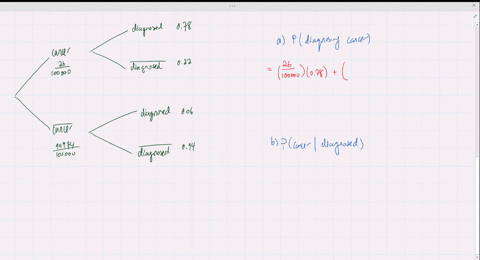 diagnosed 0.78
cancer
26/100000
d̅i̅a̅g̅n̅o̅s̅e̅d̅ 0.22
c̅a̅n̅c̅e̅r̅
99974/100000
diagnosed 0.06
d̅i̅a̅g̅n̅o̅s̅e̅d̅ 0.94
a) P(diagnosing cancer)
= (26/100000)(0.78) + (
b) P(cancer | diagnosed)